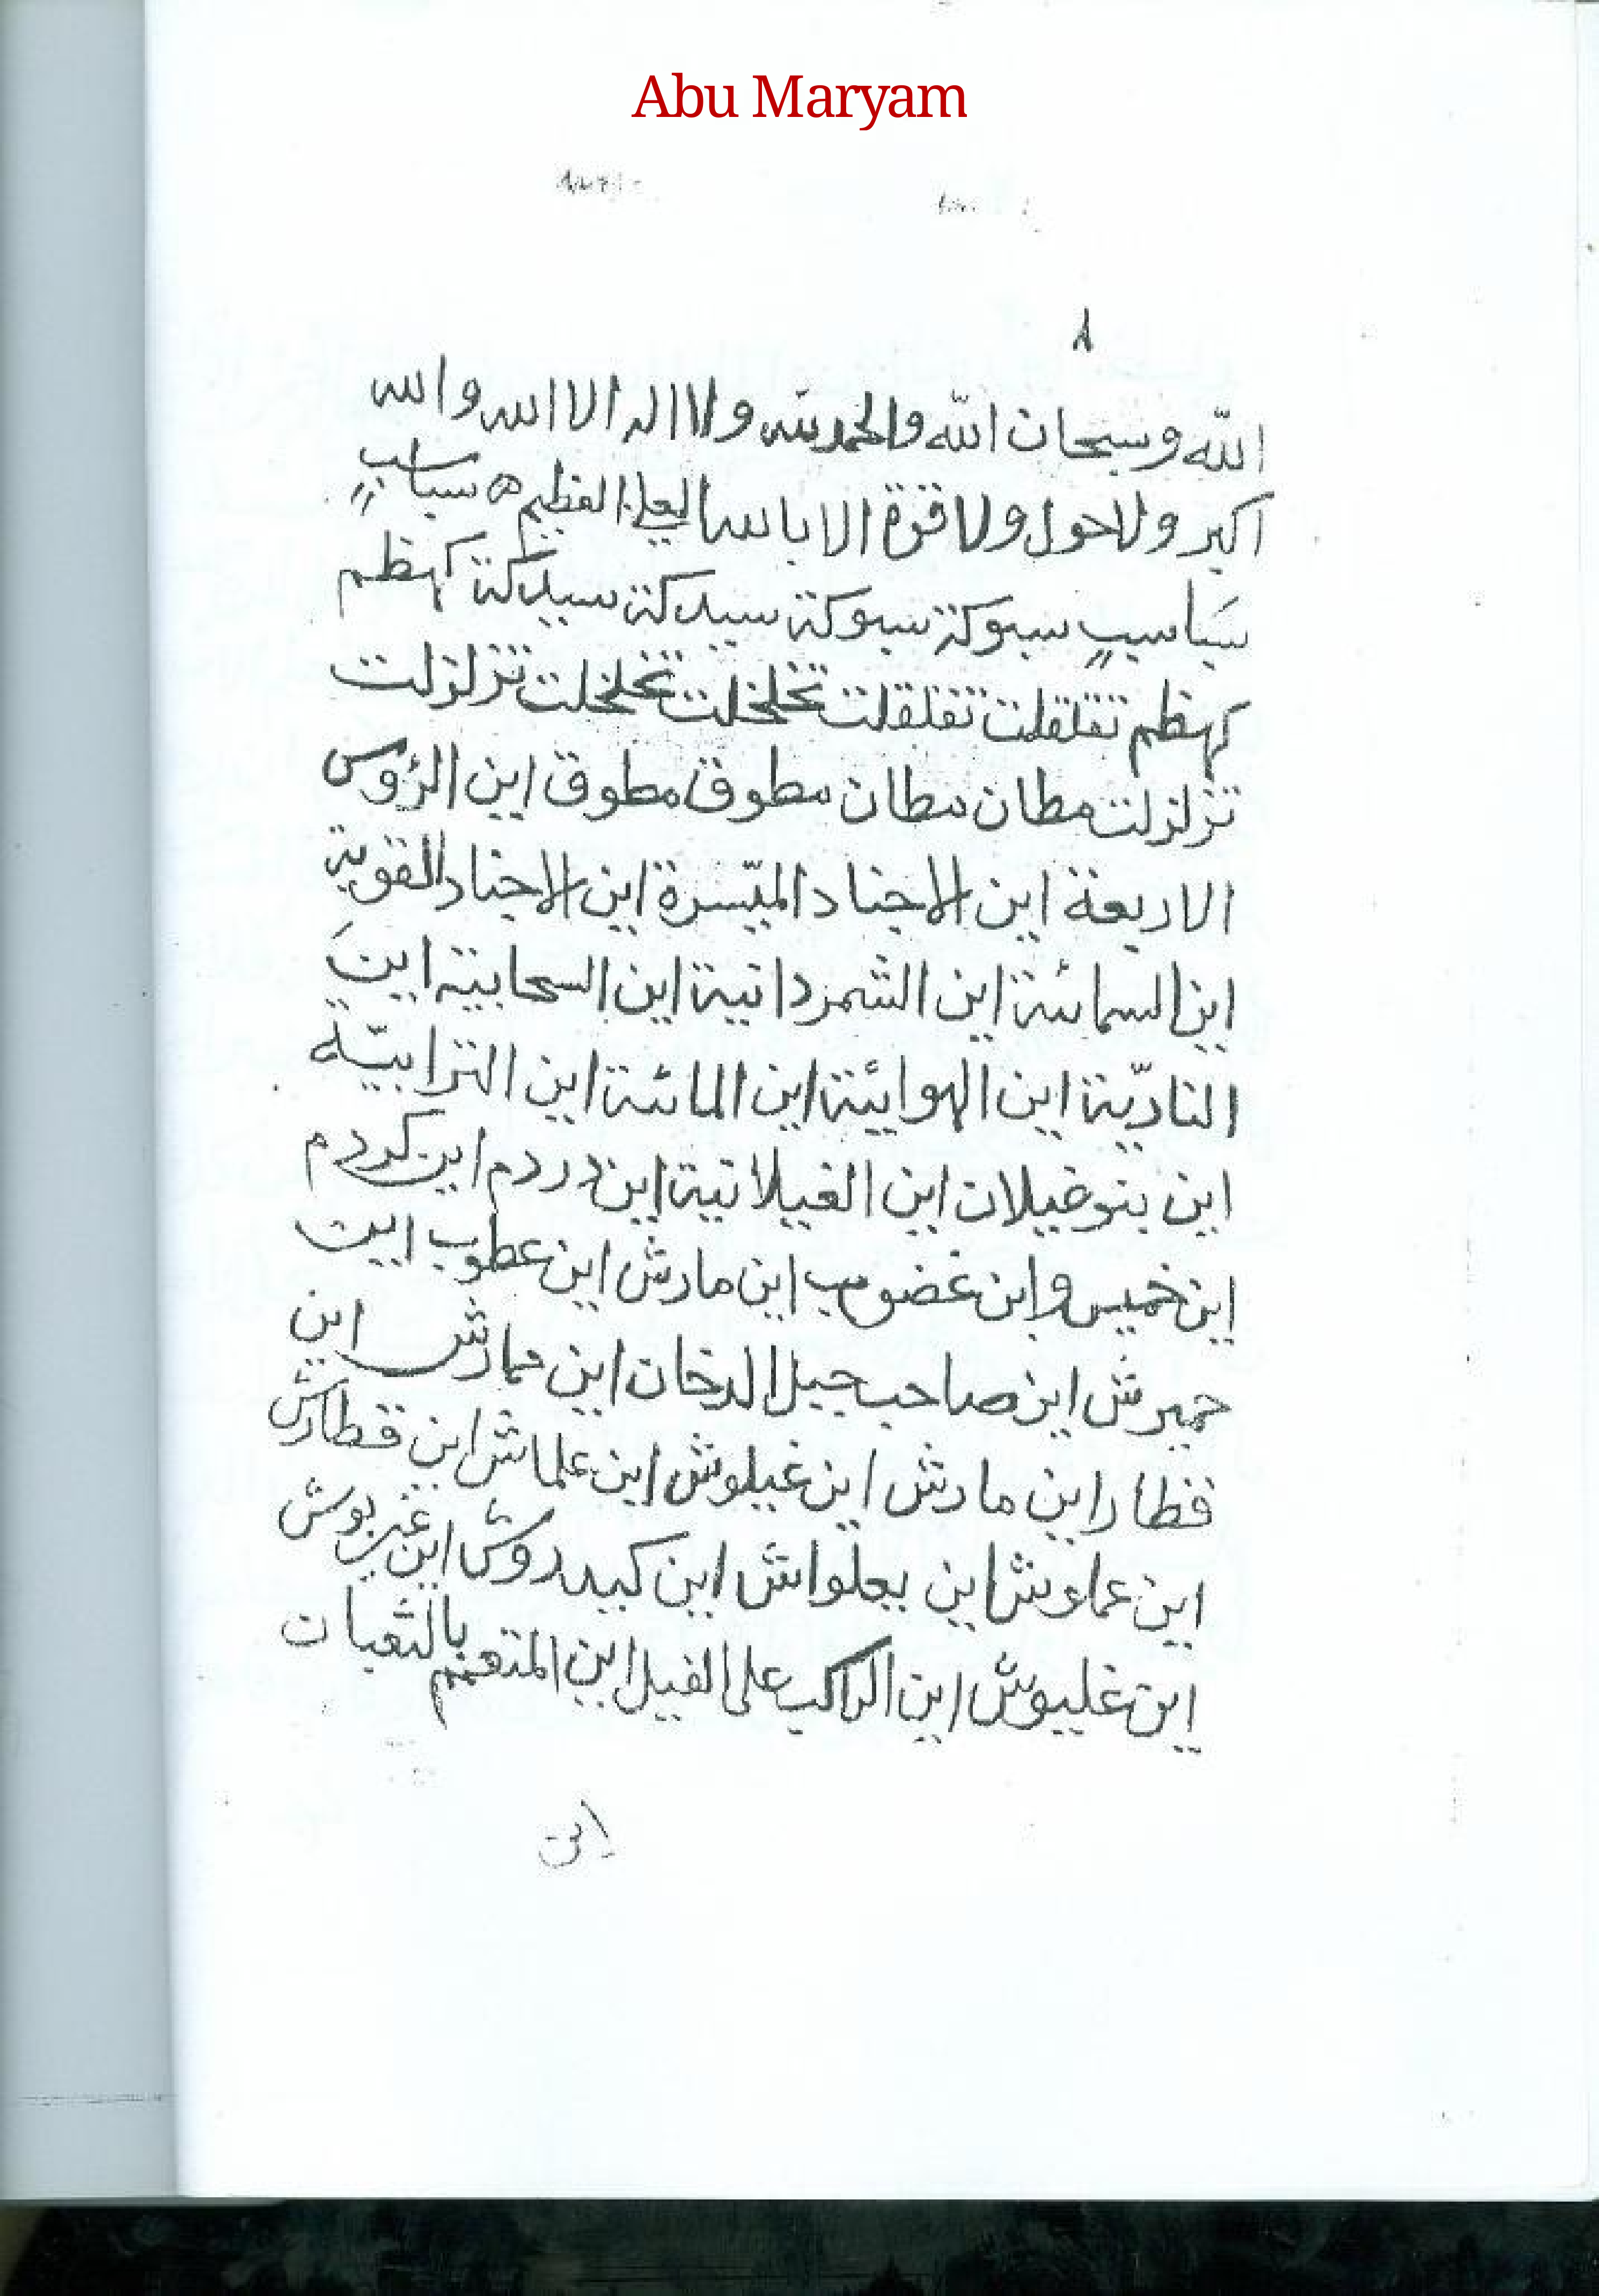 Abu Maryam
٨
الله وسبحان الله والحمد لله ولا اله الا الله والله
اكبر ولا حول ولا قوة الا بالله العلي العظيم ه سباسبٍ
سَباسبٍ سبوكة سبوكة سيدكة سيدكة كهظم
كهظم تقلقلت تقلقلت تخلخلت تخلخلت تزلزلت
تزلزلت مطان مطان مطوق مطوق اين الرؤس
الاربعة اين الاجناد الميّسرة اين الاجناد القوية
اين السمائية اين الشمردانية اين السحابية اينَ
الناريّة اين الهوائية اين المائية اين الترابيّة
اين بنوغيلان اين الغيلانية اين دردم اين كردم
اين خميس واين غضوب اين مارش اين عطوب اين
حميرش اين صاحب جبل الدخان اين مارش اين
قطار اين مارش اين غيلوش اين علماش اين قطارش
اين عملوش اين يعلواش اين اين
اين غليوش اين الراكب على الفيل اين المتعمم بالثعبان
اين